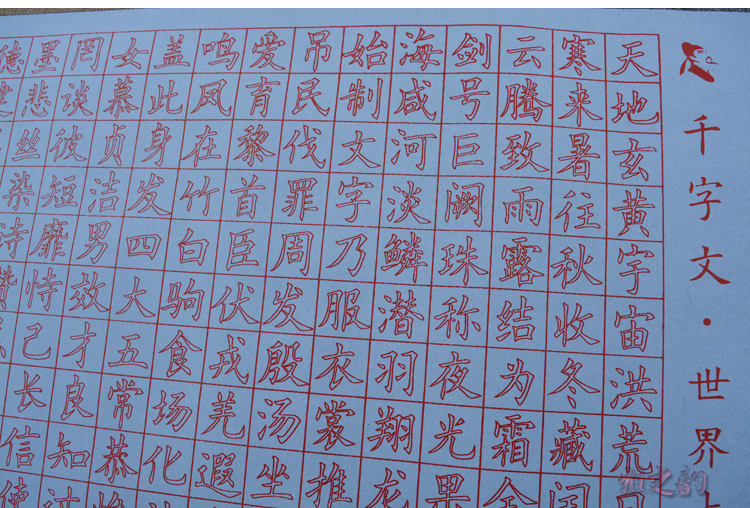 千字文·世界
天地玄黄宇宙洪荒
寒来暑往秋收冬藏闰
云腾致雨露结为霜金
剑号巨阙珠称夜光果
海咸河淡鳞潜羽翔龙
始制文字乃服衣裳推
吊民伐罪周发殷汤坐
爱育黎首臣伏戎羌遐
鸣凤在竹白驹食场化
盖此身发四大五常恭
女慕贞洁男效才良知
罔谈彼短靡恃己长信
墨悲丝染诗赞
德